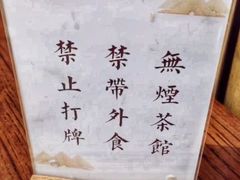 無煙茶館
禁帶外食
禁止打牌